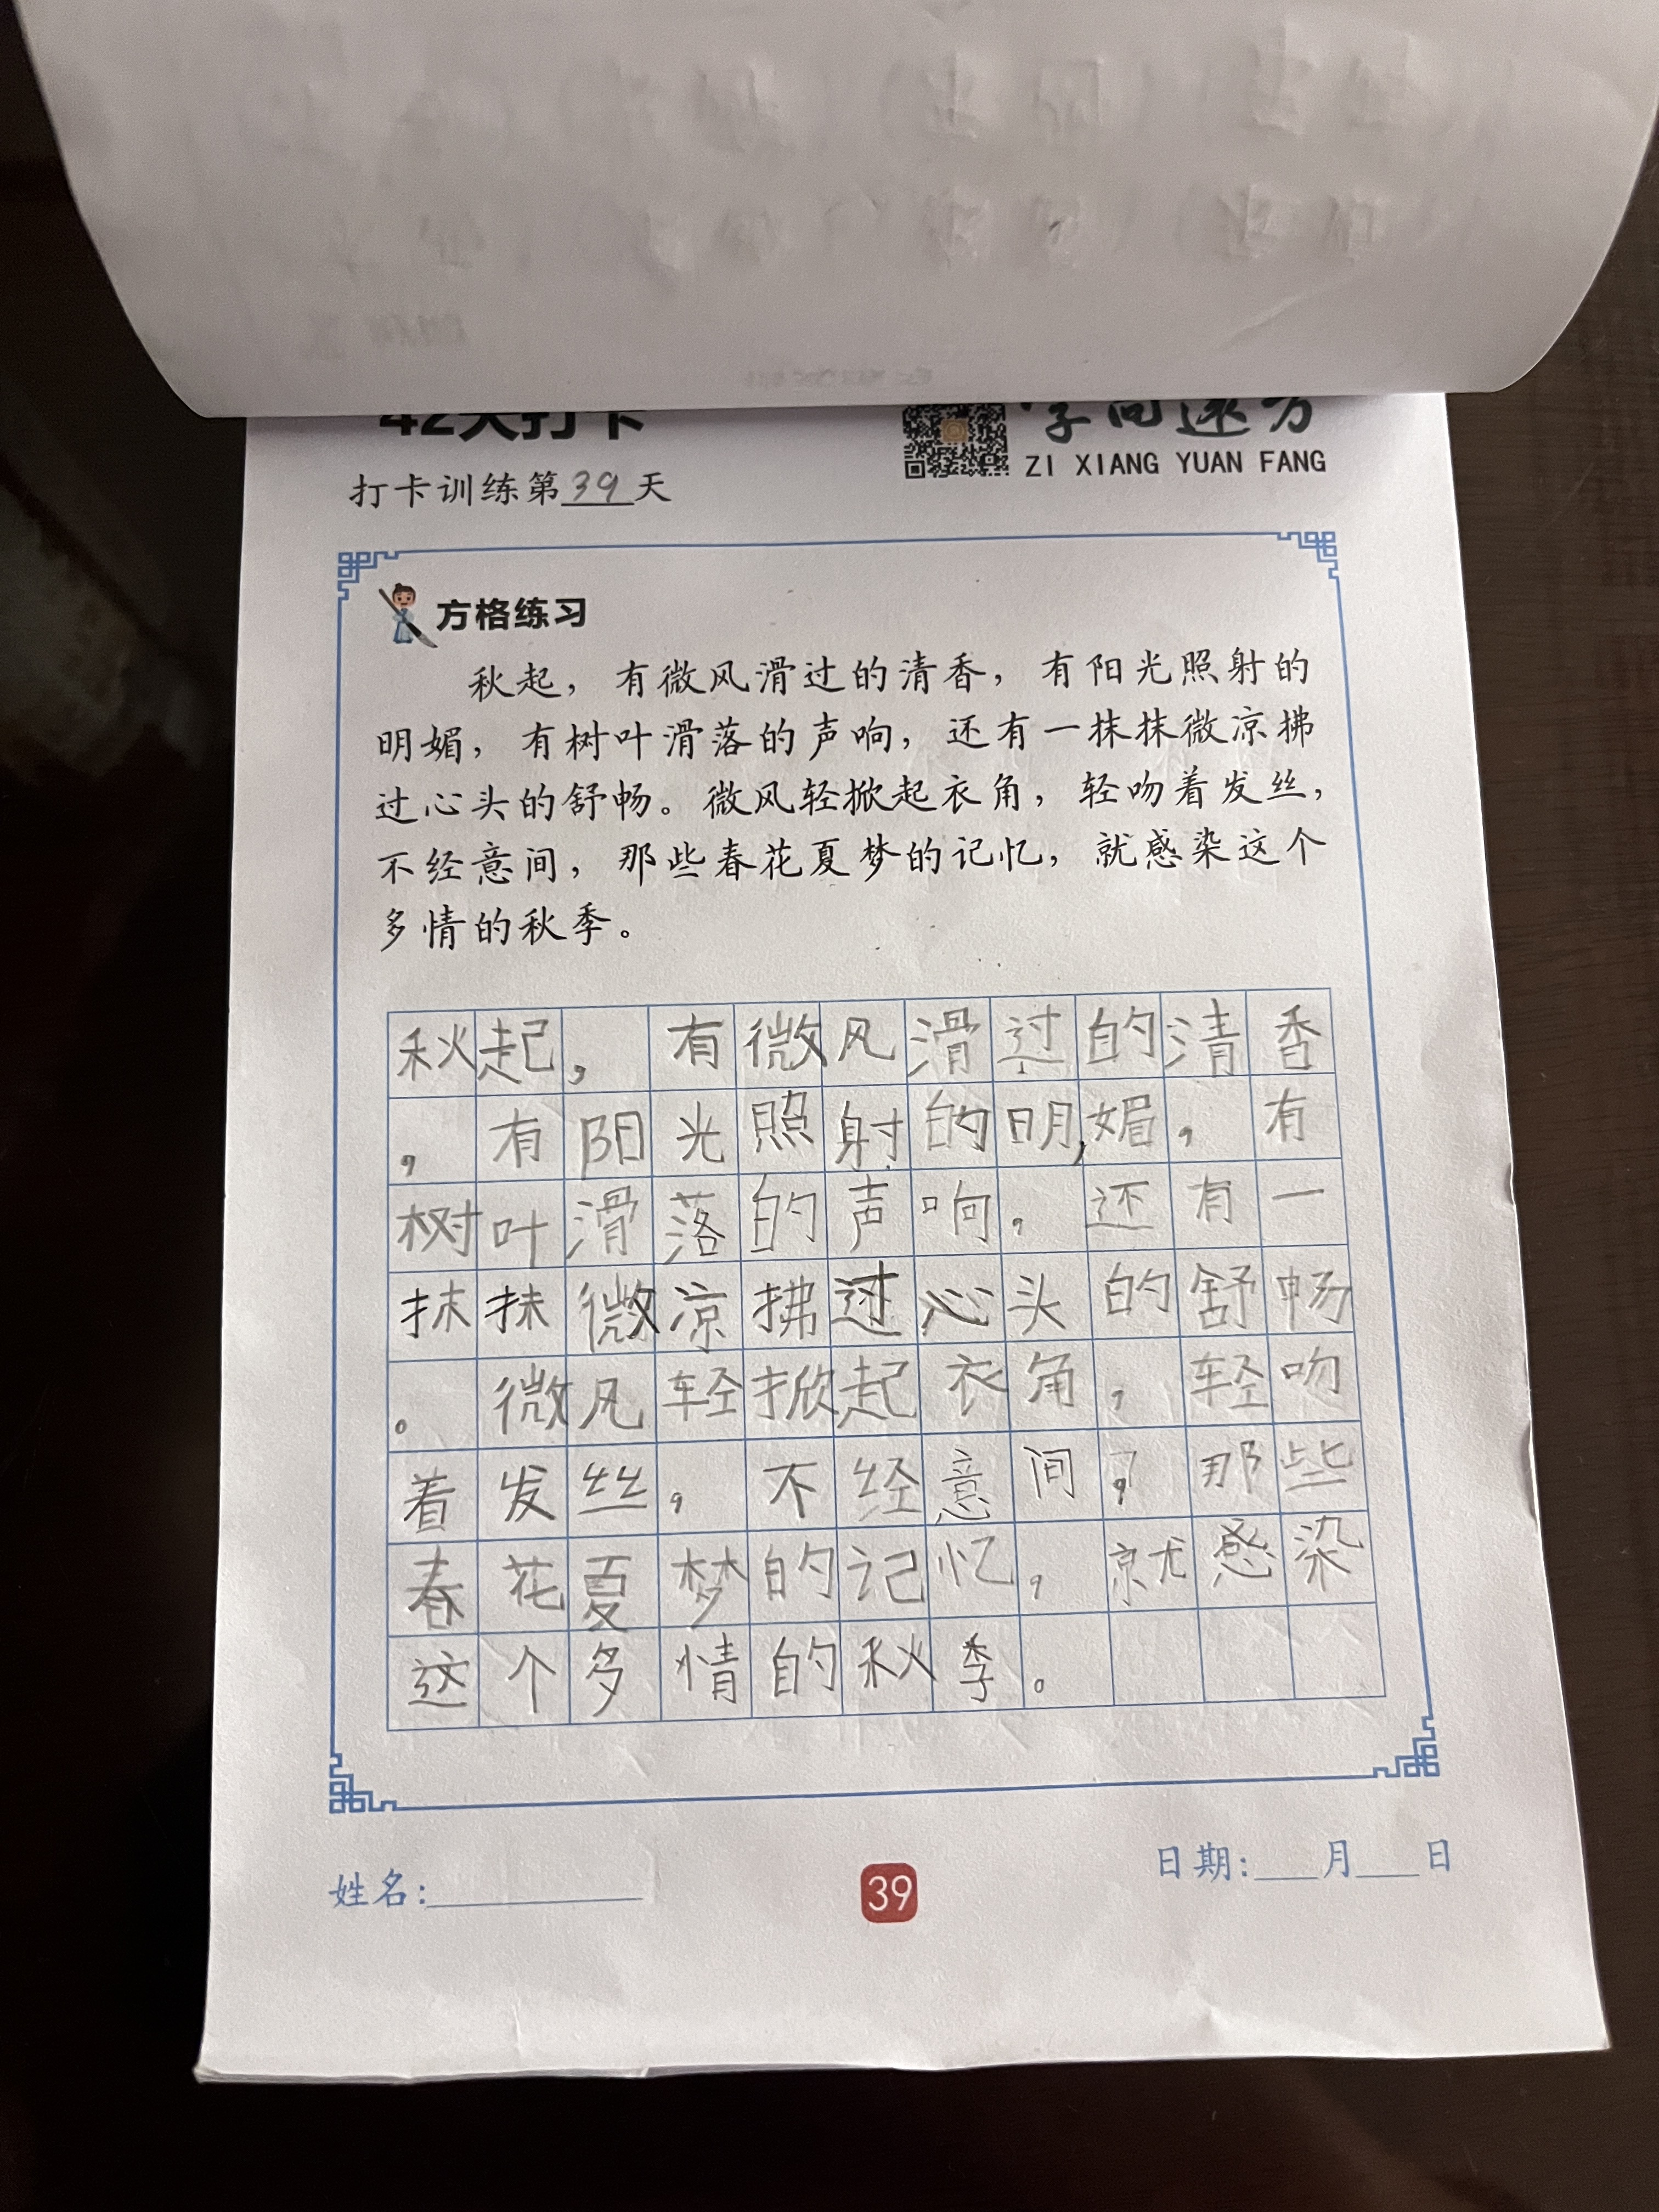 42天打卡
字向远方
ZI XIANG YUAN FANG
打卡训练第39天
方格练习
秋起，有微风滑过的清香，有阳光照射的
明媚，有树叶滑落的声响，还有一抹抹微凉拂
过心头的舒畅。微风轻掀起衣角，轻吻着发丝，
不经意间，那些春花夏梦的记忆，就感染这个
多情的秋季。
秋起，有微风滑过的清香
，有阳光照射的明,媚，有
树叶滑落的声响，还有一
抹抹微凉拂过心头的舒畅
。微风轻掀起衣角，轻吻
着发丝，不经意间，那些
春花夏梦的记忆，就感染
这个多情的秋季。
姓名:
39
日期:___月___日